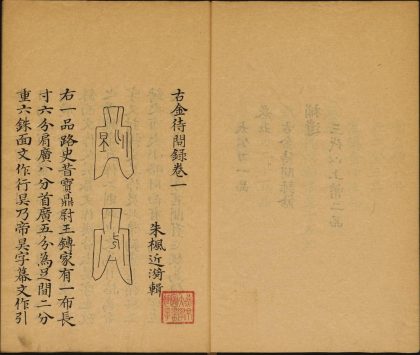 古金待問錄卷一
朱楓近漪輯
右一品路史昔寶鼎尉王鎛家有一布長
寸六分肩廣八分首廣五分為足間二分
重六銖面文作行昊乃帝昊字幕文作引